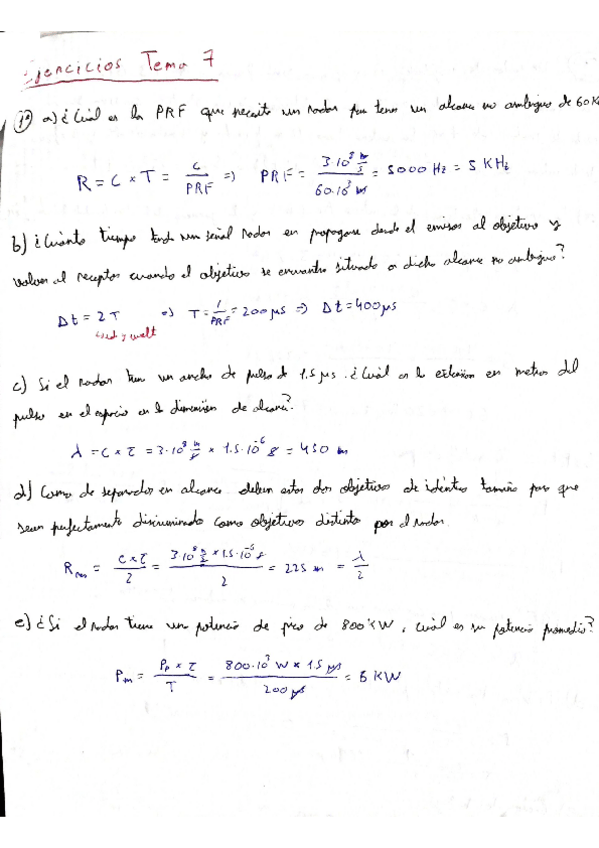 Ejercicios Tema 7
1º a) ¿Cuál es la PRF que necesita un radar para tener un alcance no ambiguo de 60 K
R = C × T = C/PRF => PRF = 3·10⁸ m/s / 60·10³ m = 5000 Hz = 5 KHz
b) ¿Cuánto tiempo tarda una señal radar en propagarse desde el emisor al objetivo y
volver al receptor cuando el objetivo se encuentra situado a dicho alcance no ambiguo?
Δt = 2T => T = 1/PRF = 200 μs => Δt = 400 μs
y vuelta
c) Si el radar tiene un ancho de pulso de 1.5 μs. ¿Cuál es la extensión en metros del
pulso en el espacio en la dimensión de alcance?
λ = C × τ = 3·10⁸ m/s × 1.5·10⁻⁶ s = 450 m
d) Como de separados en alcance deben estar dos objetivos de idéntico tamaño para que
sean perfectamente discriminados como objetivos distintos por el radar.
R = C × τ / 2 = 3·10⁸ m/s × 1.5·10⁻⁶ s / 2 = 225 m = λ/2
e) ¿Si el radar tiene una potencia de pico de 800 KW, cuál es su potencia promedio?
Pm = Pp × τ / T = 800·10³ W × 1.5 μs / 200 μs = 6 KW